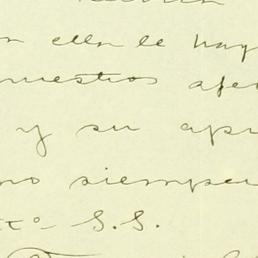 ella le hay
nuestros afe
y su apr
no siempre
S.S.